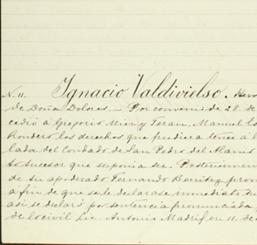 N. 11. Ignacio Valdivielso.
de Doña Dolores.— Por convenio de 28. de
cedió á Gregorio Mier y Teran, Manuel
Rondero los derechos que pudiera tener á l
lada del Condado de San Pedro del Alamo
tosucesor que suponia ser. Posteriormen
de su apoderado Fernando Benitez, prom
á fin de que se le declarase inmediato
asi se declaró por sentencia pronunciada
de lo civil Lic. Antonio Madrid, en 11. de